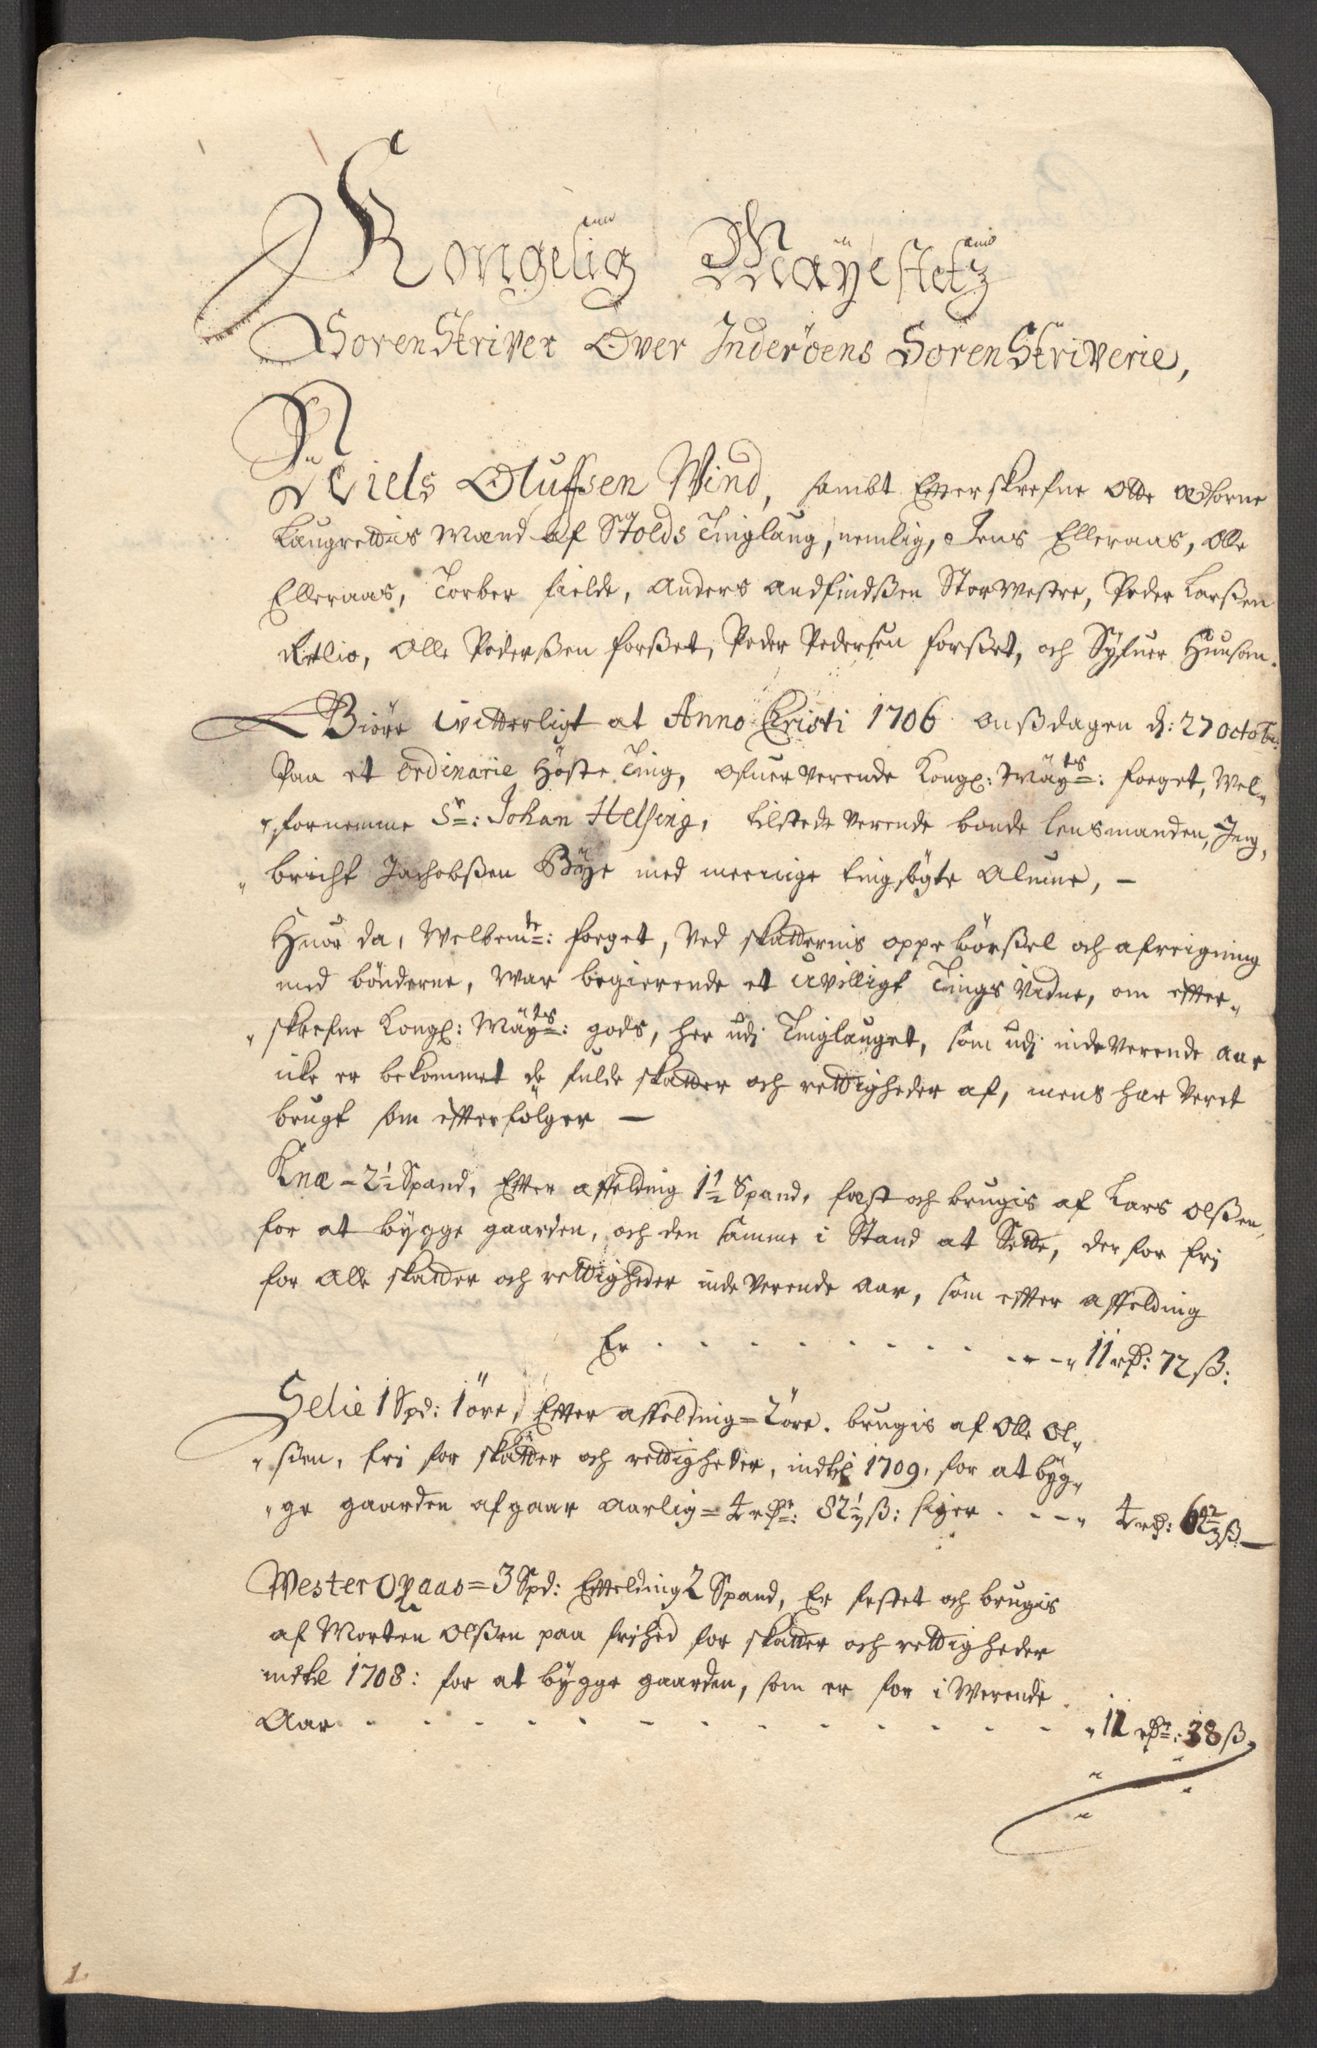 Kongelig Mäyestetz
SorenSkriver Over Inderöens SorenSkriverie,
Niels Oluffsen Wind, sambt Efterskrefne Otte Edsorne
Laugrettis Mænd af Stods Tinglaug, nemlig, Jens Elleraas, Olle
Elleraas, Torber fielde, Anders Andfindßen StorWestre, Peder Larßen
Olle Pederßen forßet, Peder Pedersen forßet, och Syfuer Huusom.
Giöre Witterligt at Anno Christi 1706 onßdagen d: 27 octobr:
Paa et ordinarie Höste Ting, ofuerverende Kongl: Mäyts: foeget, Wel-
fornemme Sr: Johan Helsing, tilstede verende bonde lensmanden, Ing-
bricht Jachobßen Böye med meenige tingsögte Almue, -
Huor da, Welbemte: foeget, Ved skatternis oppebörßel och afreigning
med bönderne, war begierende et uvilligt Tings Vidne, om effter-
skrefne Kongl: Mäyts: gods, her udj Tinglauget, som udj indeverende aar
icke er bekommet de fulde skatter och rettigheder af, mens har veret
brugt som effterfölger -
Knæ - 2½ Spand, Efter affelding 1½ Spand, fæst och brugis af Lars Olßen,
for at bygge gaarden, och den samme i Stand at Sette, der for fri
for Alle skatter och rettigheder indeverende aar, som effter affelding
Er - - - 11 rdr: 72 ß:
Selie 1 Spd: 1 öre, Efter affelding = 2 öre. brugis af Olle Ol-
ßen, fri for skatter och rettigheder, indtil 1709, for at byg-
ge gaarden afgaar Aarlig = 4 rdr: 82½ ß: siger - - - 4 rdr: ß -
= 3 Spd: Effelding 2 Spand, Er festet och brugis
af Morten Olßen paa frihed for skatter och rettigheder
indtil 1708: for at bygge gaarden, som er for i Werende
Aar - - - 11 rdr: 38 ß.
1.